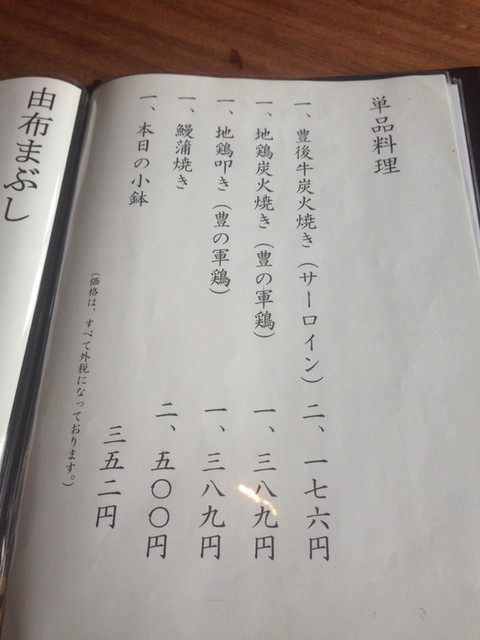 単品料理
一、豊後牛炭火焼き（サーロイン）二、一七六円
一、地鶏炭火焼き（豊の軍鶏）一、三八九円
一、地鶏叩き（豊の軍鶏）一、三八九円
一、鰻蒲焼き 二、五〇〇円
一、本日の小鉢 三五二円
（価格は、すべて外税になっております。）
由布まぶし